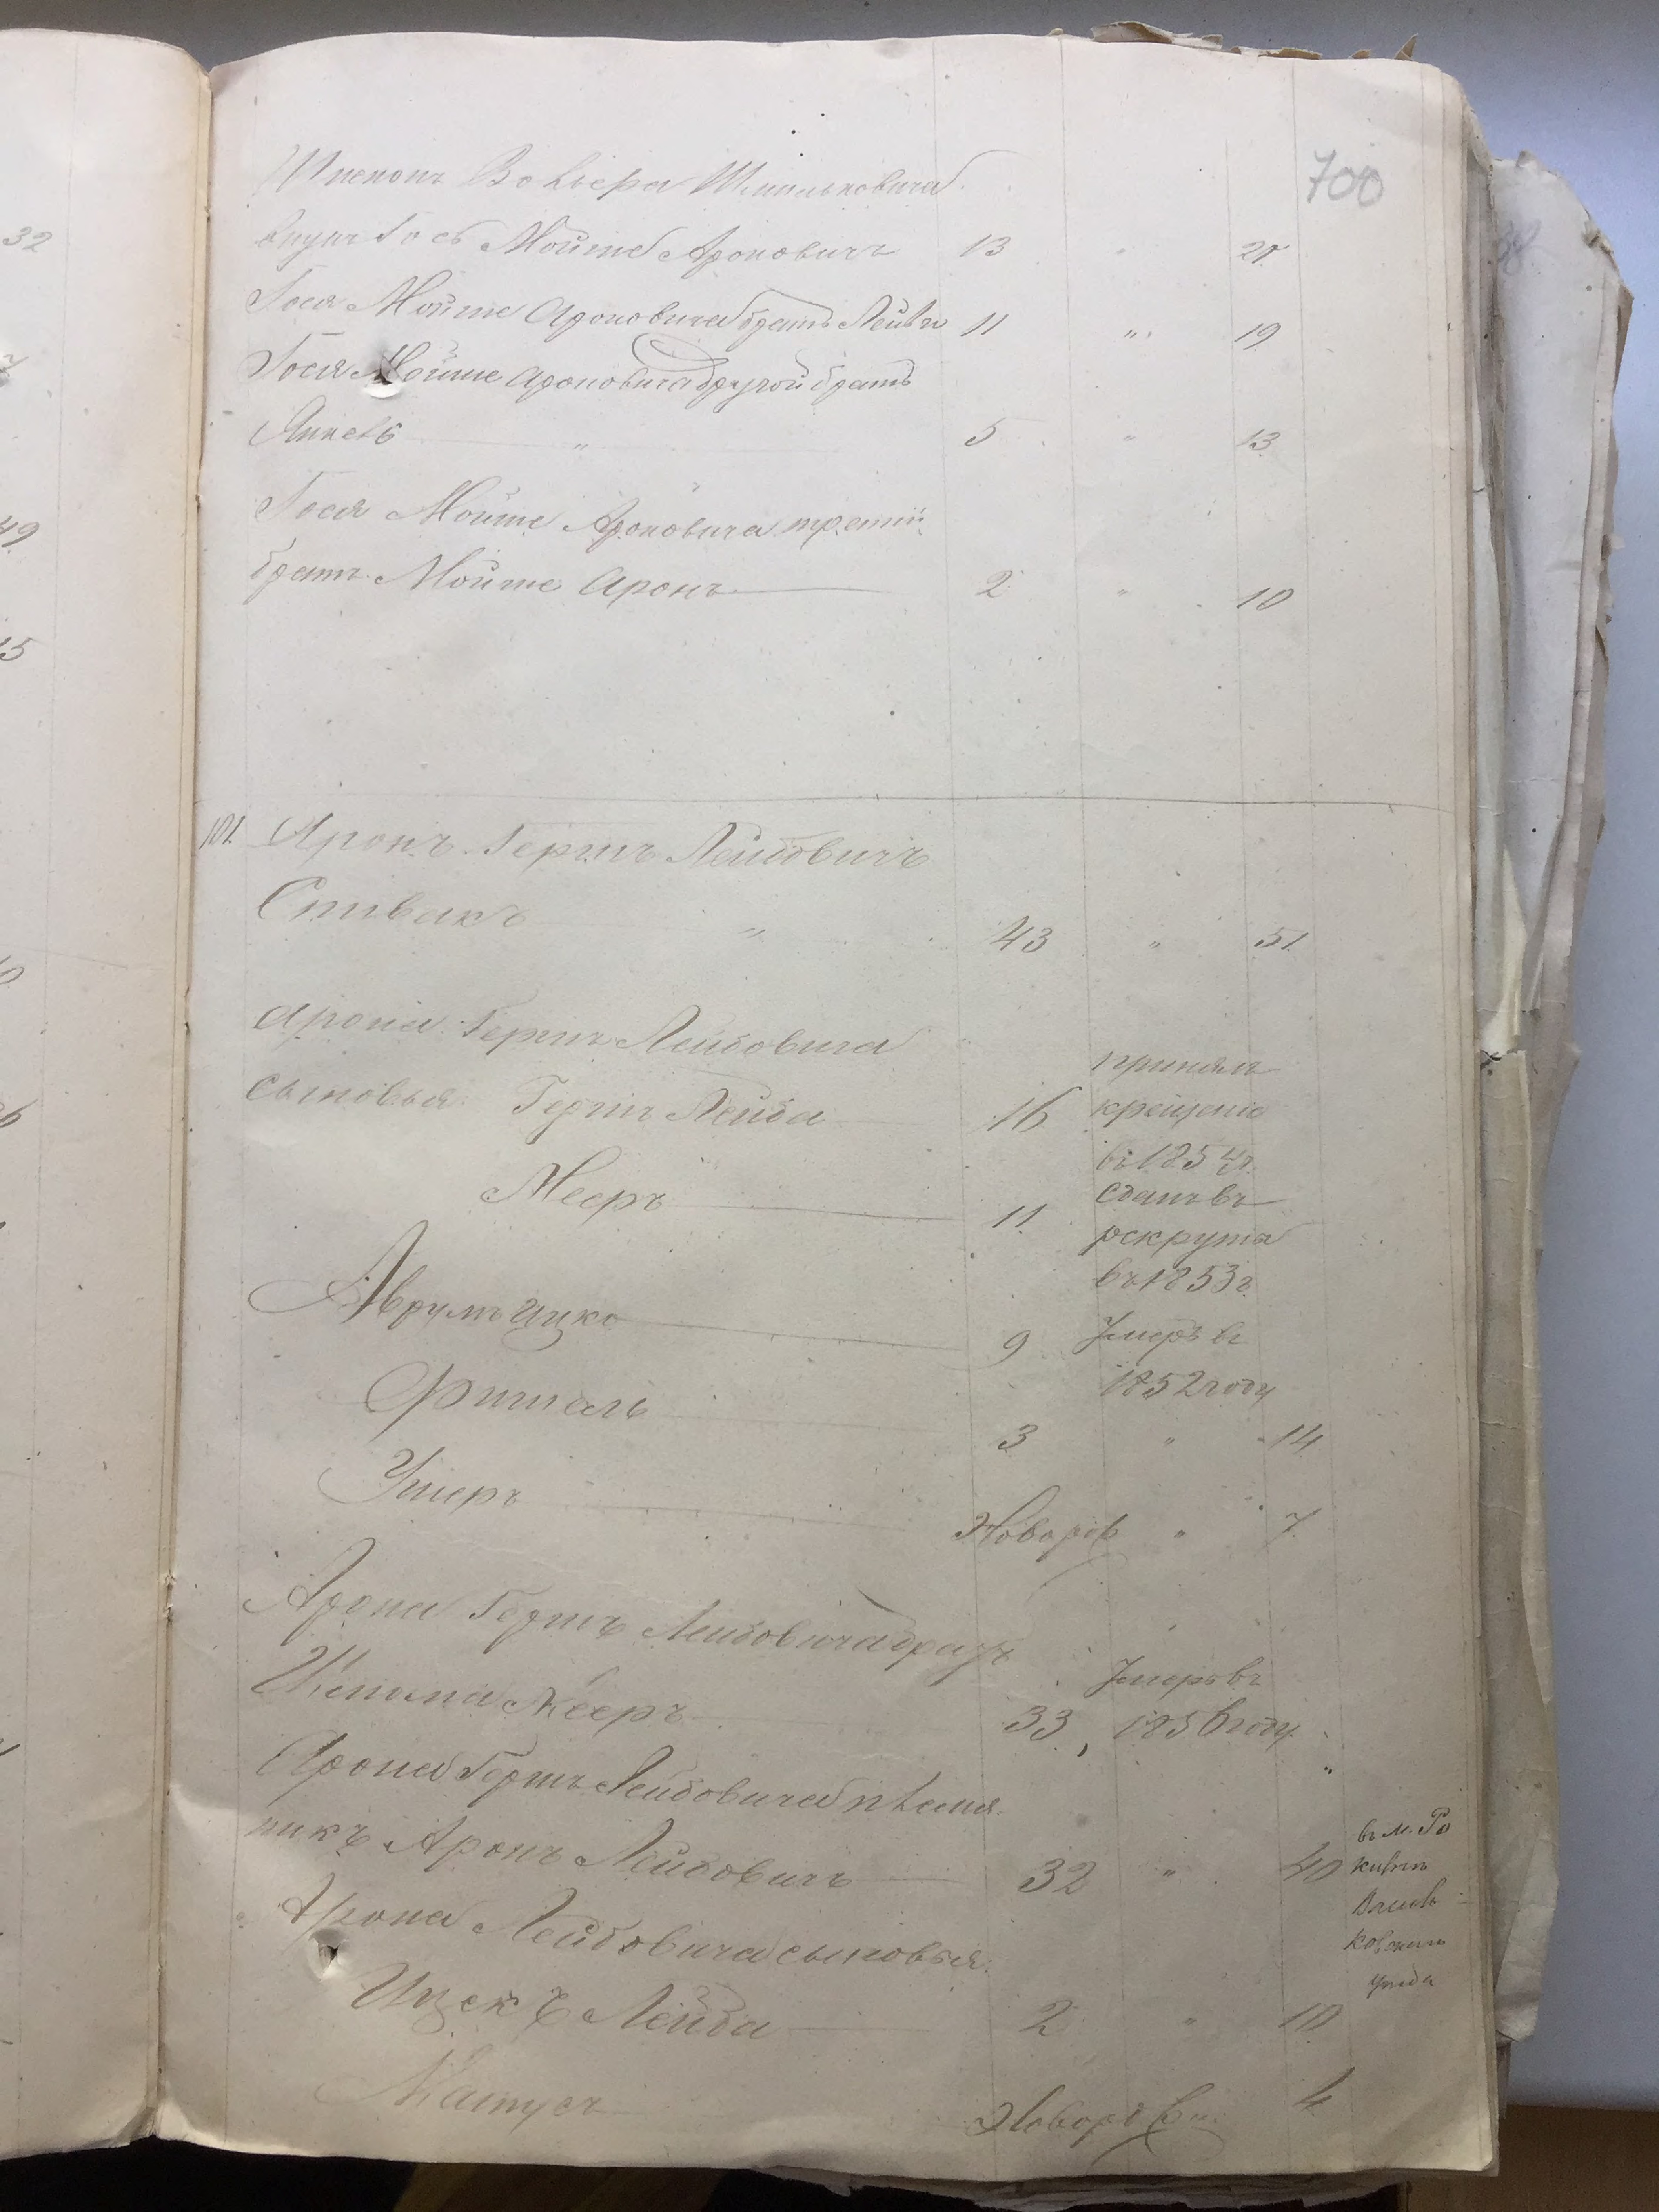 700
Шпекопъ Вольера Шмильковича
внукъ Гось Мойше Ароновичъ 13 " 21
Гося Мойше Ароновича братъ Лейвы 11 " 19
Гося Мойше Ароновича другой братъ
Янкевъ " 5 " 13
Гося Мойше Ароновича третий
братъ Мойше Аронъ 2 " 10
101. Аронъ Гершъ Лейбовичъ
Спивакъ " 43 " 51
Арона Гершъ Лейбовича
сыновья Гершъ Лейба 16 принялъ
крещеніе
въ 1854г.
Мееръ 11 сданъ въ
рекруты
въ 1853г.
Аврумъ Ицко 9 Умеръ въ
1852 году
Фишель 3 " 14
Ушеръ Новорож " 7
Арона Гершъ Лейбовича братъ
Мееръ 33 Умеръ въ
1856 году "
Арона Гершъ Лейбовича племян
никъ Аронъ Лейбовичъ 32 " 40
въ м. Ро
китнъ
Василь
ковскаго
уезда
Арона Лейбовича сыновья
Ицекъ Лейба 2 " 10
Матусъ Новорож " 4
32
49